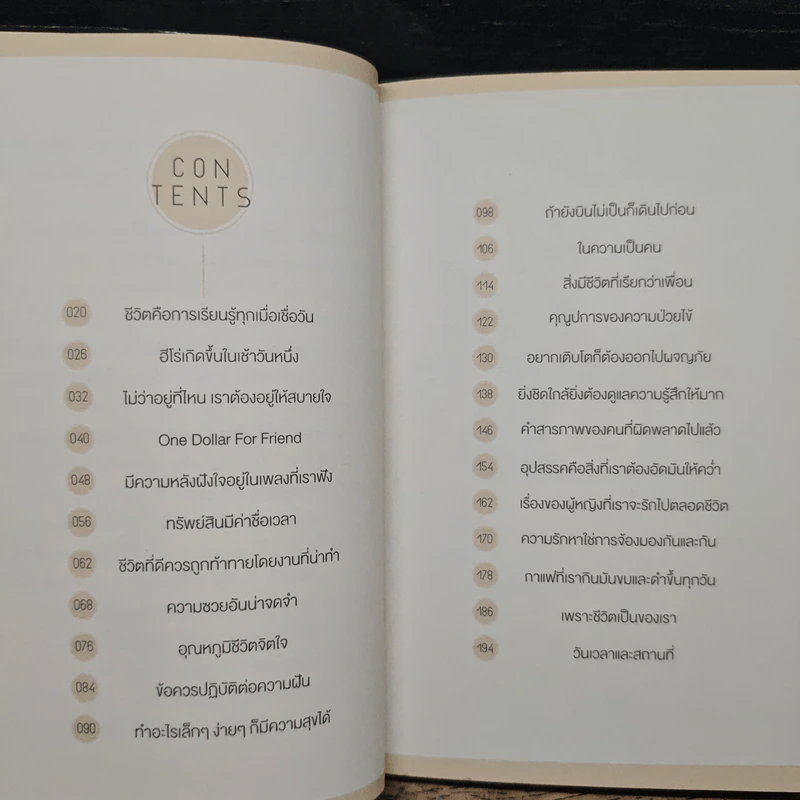 CON
TENTS
020 ชีวิตคือการเรียนรู้ทุกเมื่อเชื่อวัน
026 ฮีโร่เกิดขึ้นในเช้าวันหนึ่ง
032 ไม่ว่าอยู่ที่ไหน เราต้องอยู่ให้สบายใจ
040 One Dollar For Friend
048 มีความหลังฝังใจอยู่ในเพลงที่เราฟัง
056 ทรัพย์สินมีค่าชื่อเวลา
062 ชีวิตที่ดีควรถูกท้าทายโดยงานที่น่าทำ
068 ความซวยอันน่าจดจำ
076 อุณหภูมิชีวิตจิตใจ
084 ข้อควรปฏิบัติต่อความฝัน
090 ทำอะไรเล็กๆ ง่ายๆ ก็มีความสุขได้
098 ถ้ายังบินไม่เป็นก็เดินไปก่อน
106 ในความเป็นคน
114 สิ่งมีชีวิตที่เรียกว่าเพื่อน
122 คุณูปการของความป่วยไข้
130 อยากเติบโตก็ต้องออกไปผจญภัย
138 ยิ่งชิดใกล้ยิ่งต้องดูแลความรู้สึกให้มาก
146 คำสารภาพของคนที่ผิดพลาดไปแล้ว
154 อุปสรรคคือสิ่งที่เราต้องอัดมันให้คว่ำ
162 เรื่องของผู้หญิงที่เราจะรักไปตลอดชีวิต
170 ความรักหาใช่การจ้องมองกันและกัน
178 กาแฟที่เรากินมันขมและดำขึ้นทุกวัน
186 เพราะชีวิตเป็นของเรา
194 วันเวลาและสถานที่